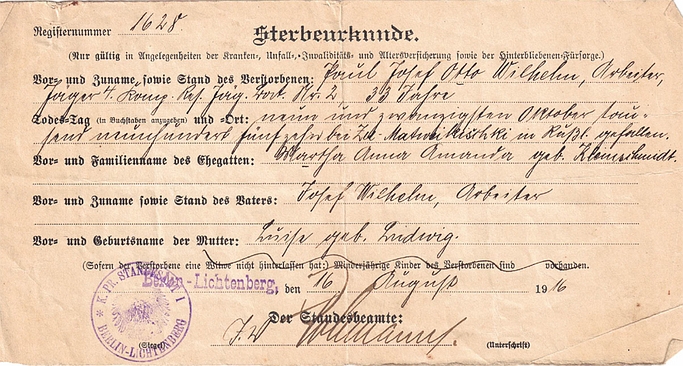 Registernummer 1628.
Sterbeurkunde.
(Nur gültig in Angelegenheiten der Kranken-, Unfall-, Invaliditäts- und Altersversicherung sowie der Hinterbliebenen-Fürsorge.)
Vor- und Zuname, sowie Stand des Verstorbenen: Paul Josef Otto Wilhelm, Arbeiter,
Jäger 4. Komp. Res. Jäg. Bat. Nr. 2 33 Jahre
Todes-Tag (in Buchstaben anzugeben) und -Ort: neun und zwanzigsten Oktober tau-
send neunhundert fünfzehn bei in Rußl. gefallen.
Vor- und Familienname des Ehegatten: Martha Anna Amanda geb. Kleinschmidt.
Vor- und Zuname sowie Stand des Vaters: Josef Wilhelm, Arbeiter
Vor- und Geburtsname der Mutter: Luise geb. Ludwig.
(Sofern der Verstorbene eine Witwe nicht hinterlassen hat:) Minderjährige Kinder des Verstorbenen sind vorhanden.
Berlin-Lichtenberg, den 16 August 1916
K. PR. STANDESAMT I
BERLIN-LICHTENBERG
Der Standesbeamte:
J. V.
(Siegel) (Unterschrift)